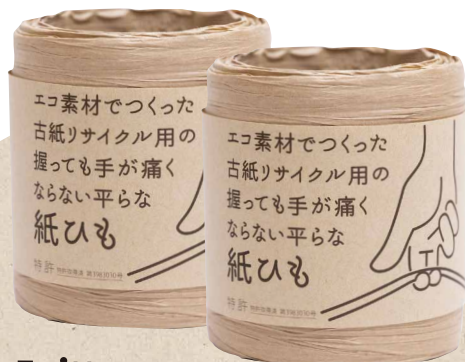 エコ素材でつくった
古紙リサイクル用の
握っても手が痛く
ならない平らな
紙ひも
特許
エコ素材でつくった
古紙リサイクル用の
握っても手が痛く
ならない平らな
紙ひも
特許